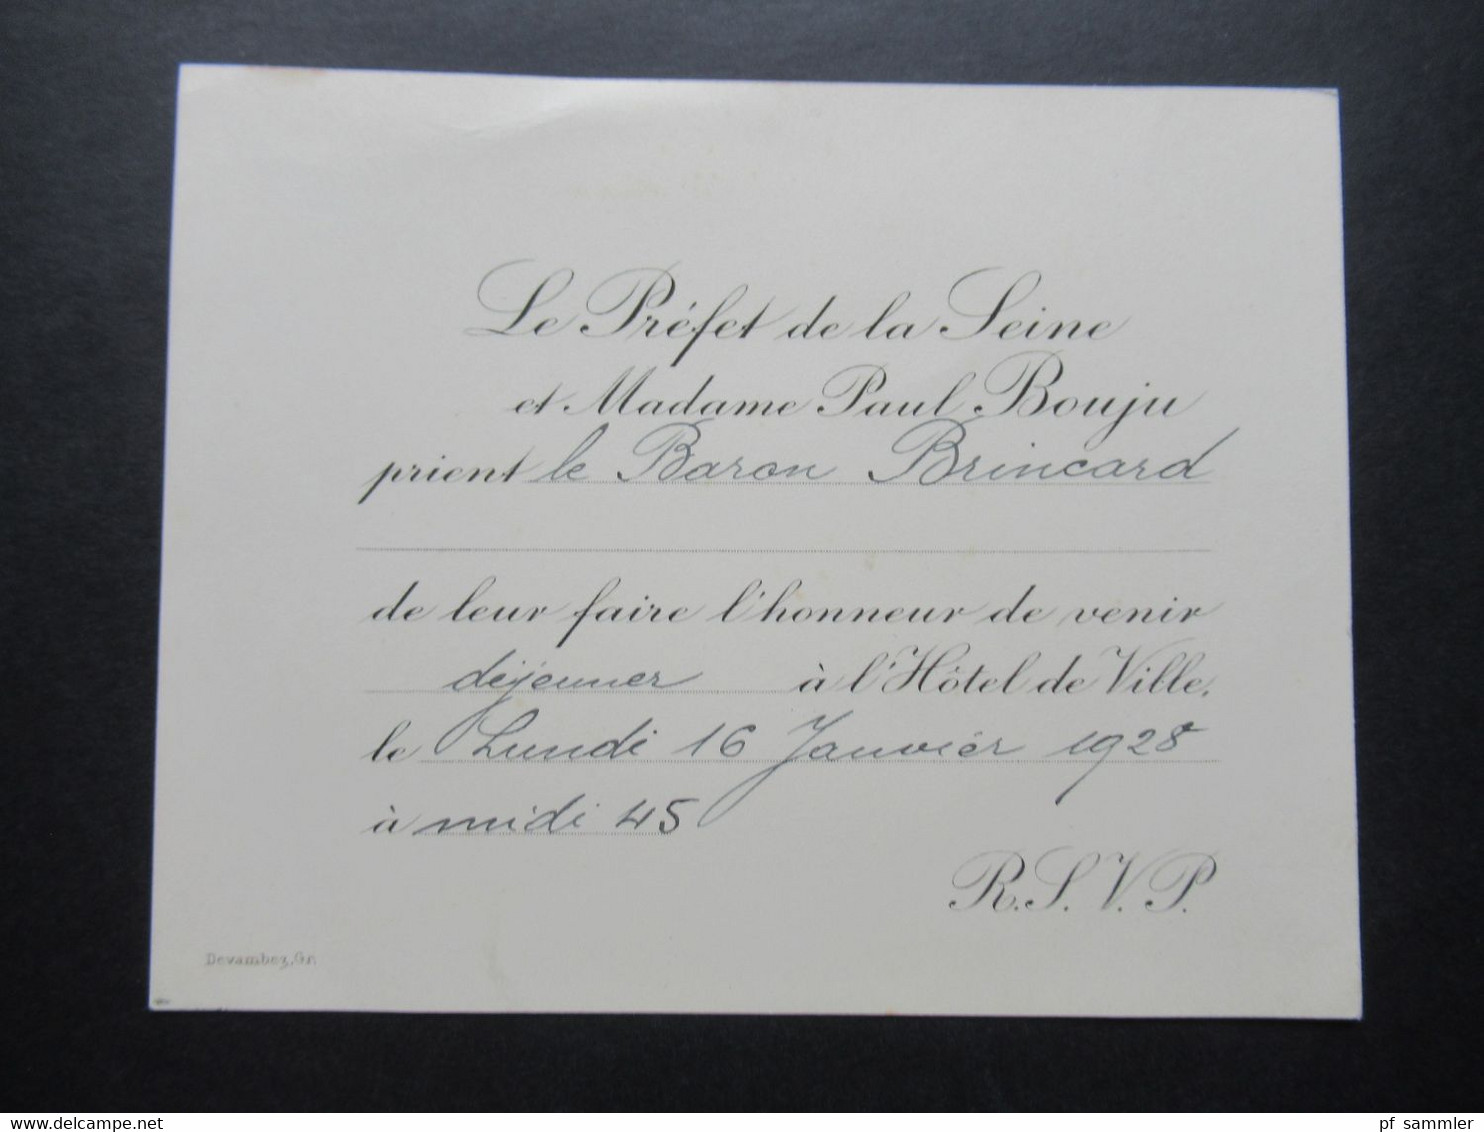 Le Préfet de la Seine
et Madame Paul Bouju
prient le Baron Brincard
de leur faire l'honneur de venir
déjeuner à l'Hôtel de Ville,
le Lundi 16 Janvier 1928
à midi 45
R.S.V.P.
Devambez, Gr.
delcampe.net
pf_sammler